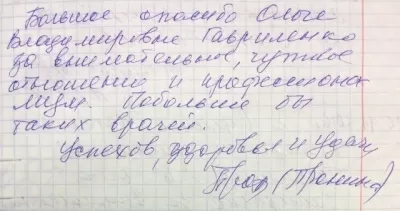 Большое спасибо Ольге
Владимировне Гавриленко
за внимательное, чуткое
отношение и професссионал
лизм. Побольше бы
таких врачей.
Успехов, здоровья и удачи
(Тронина)